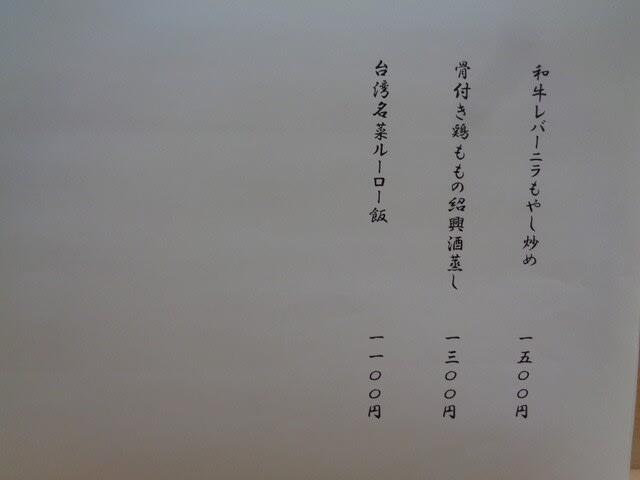 和牛レバーニラもやし炒め 一五〇〇円
骨付き鶏ももの紹興酒蒸し 一三〇〇円
台湾名菜ルーロー飯 一一〇〇円